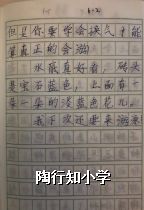 但是你要学会换气才能
算真正的会游
水底真好看，砖头
是宝石蓝色，上面有一
朵一朵的浅蓝色花儿。
我下次还要来游泳
陶行知小学